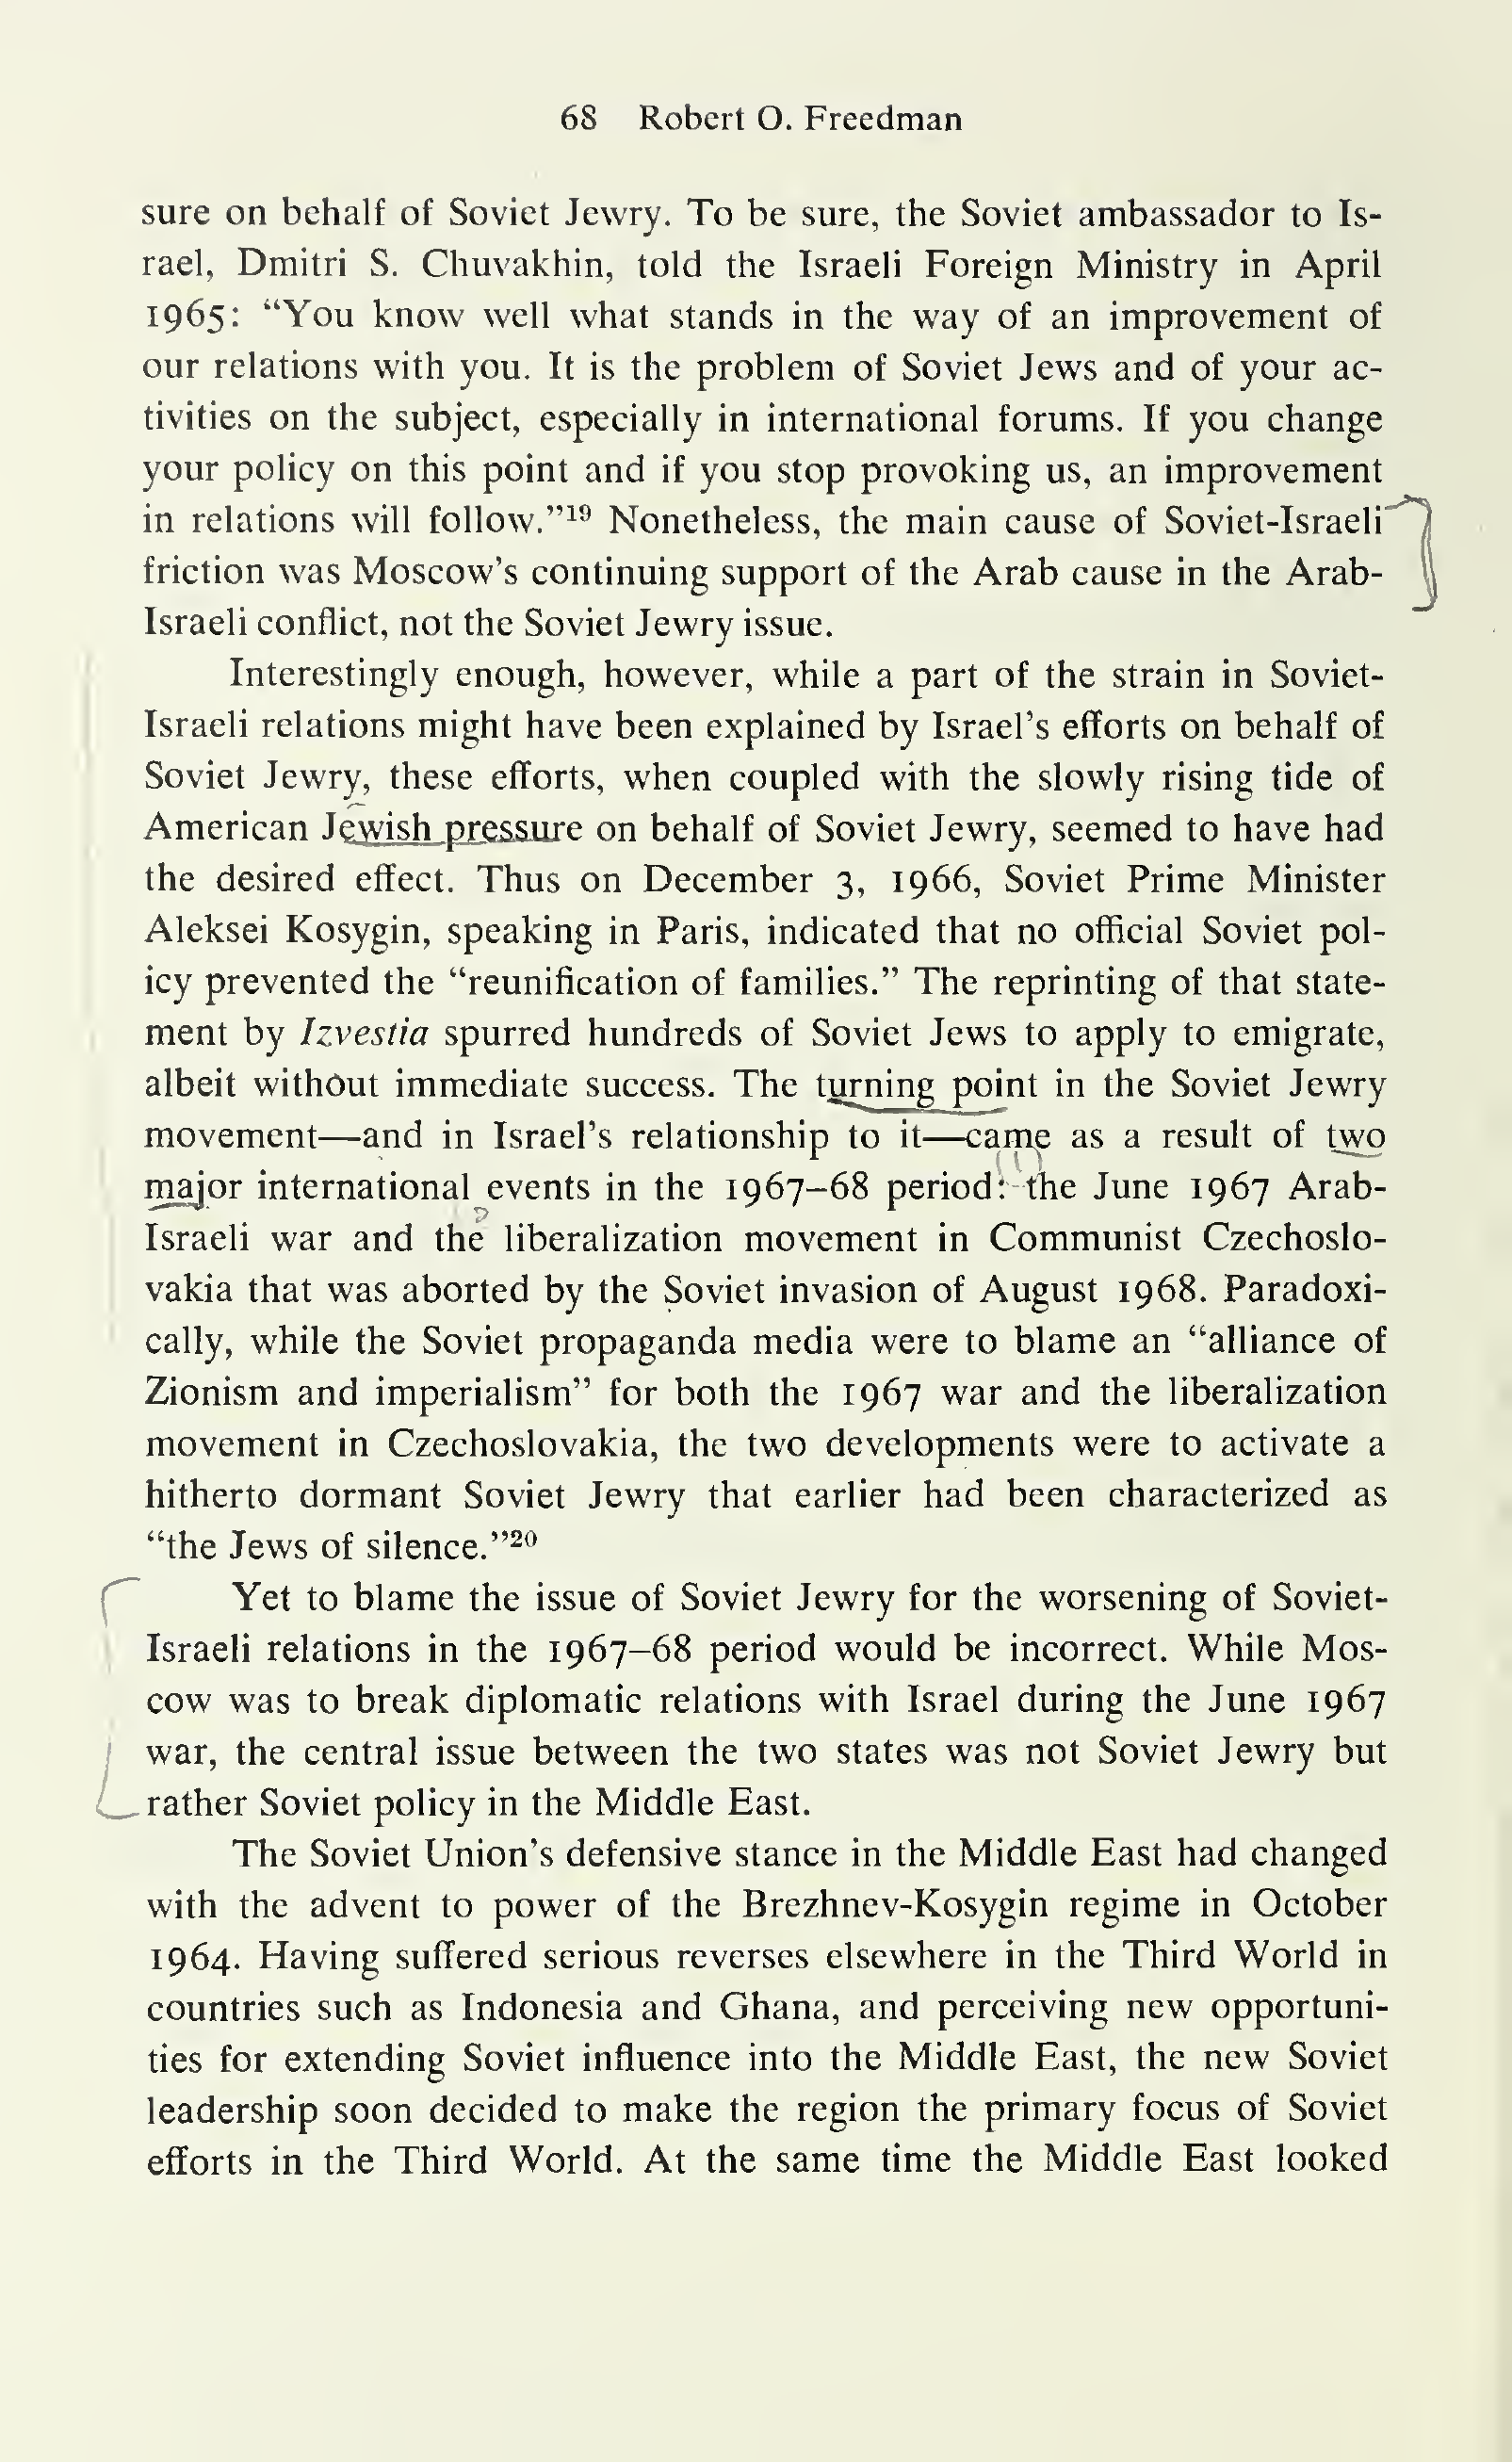 68 Robert O. Freedman
sure on behalf of Soviet Jewry. To be sure, the Soviet ambassador to Is-
rael, Dmitri S. Chuvakhin, told the Israeli Foreign Ministry in April
1965: “You know well what stands in the way of an improvement of
our relations with you. It is the problem of Soviet Jews and of your ac-
tivities on the subject, especially in international forums. If you change
your policy on this point and if you stop provoking us, an improvement
in relations will follow.”¹⁹ Nonetheless, the main cause of Soviet-Israeli
friction was Moscow’s continuing support of the Arab cause in the Arab-
Israeli conflict, not the Soviet Jewry issue.
Interestingly enough, however, while a part of the strain in Soviet-
Israeli relations might have been explained by Israel’s efforts on behalf of
Soviet Jewry, these efforts, when coupled with the slowly rising tide of
American Jewish pressure on behalf of Soviet Jewry, seemed to have had
the desired effect. Thus on December 3, 1966, Soviet Prime Minister
Aleksei Kosygin, speaking in Paris, indicated that no official Soviet pol-
icy prevented the “reunification of families.” The reprinting of that state-
ment by Izvestia spurred hundreds of Soviet Jews to apply to emigrate,
albeit without immediate success. The turning point in the Soviet Jewry
movement—and in Israel’s relationship to it—came as a result of two
major international events in the 1967–68 period: the June 1967 Arab-
Israeli war and the liberalization movement in Communist Czechoslo-
vakia that was aborted by the Soviet invasion of August 1968. Paradoxi-
cally, while the Soviet propaganda media were to blame an “alliance of
Zionism and imperialism” for both the 1967 war and the liberalization
movement in Czechoslovakia, the two developments were to activate a
hitherto dormant Soviet Jewry that earlier had been characterized as
“the Jews of silence.”²⁰
Yet to blame the issue of Soviet Jewry for the worsening of Soviet-
Israeli relations in the 1967–68 period would be incorrect. While Mos-
cow was to break diplomatic relations with Israel during the June 1967
war, the central issue between the two states was not Soviet Jewry but
rather Soviet policy in the Middle East.
The Soviet Union’s defensive stance in the Middle East had changed
with the advent to power of the Brezhnev-Kosygin regime in October
1964. Having suffered serious reverses elsewhere in the Third World in
countries such as Indonesia and Ghana, and perceiving new opportuni-
ties for extending Soviet influence into the Middle East, the new Soviet
leadership soon decided to make the region the primary focus of Soviet
efforts in the Third World. At the same time the Middle East looked